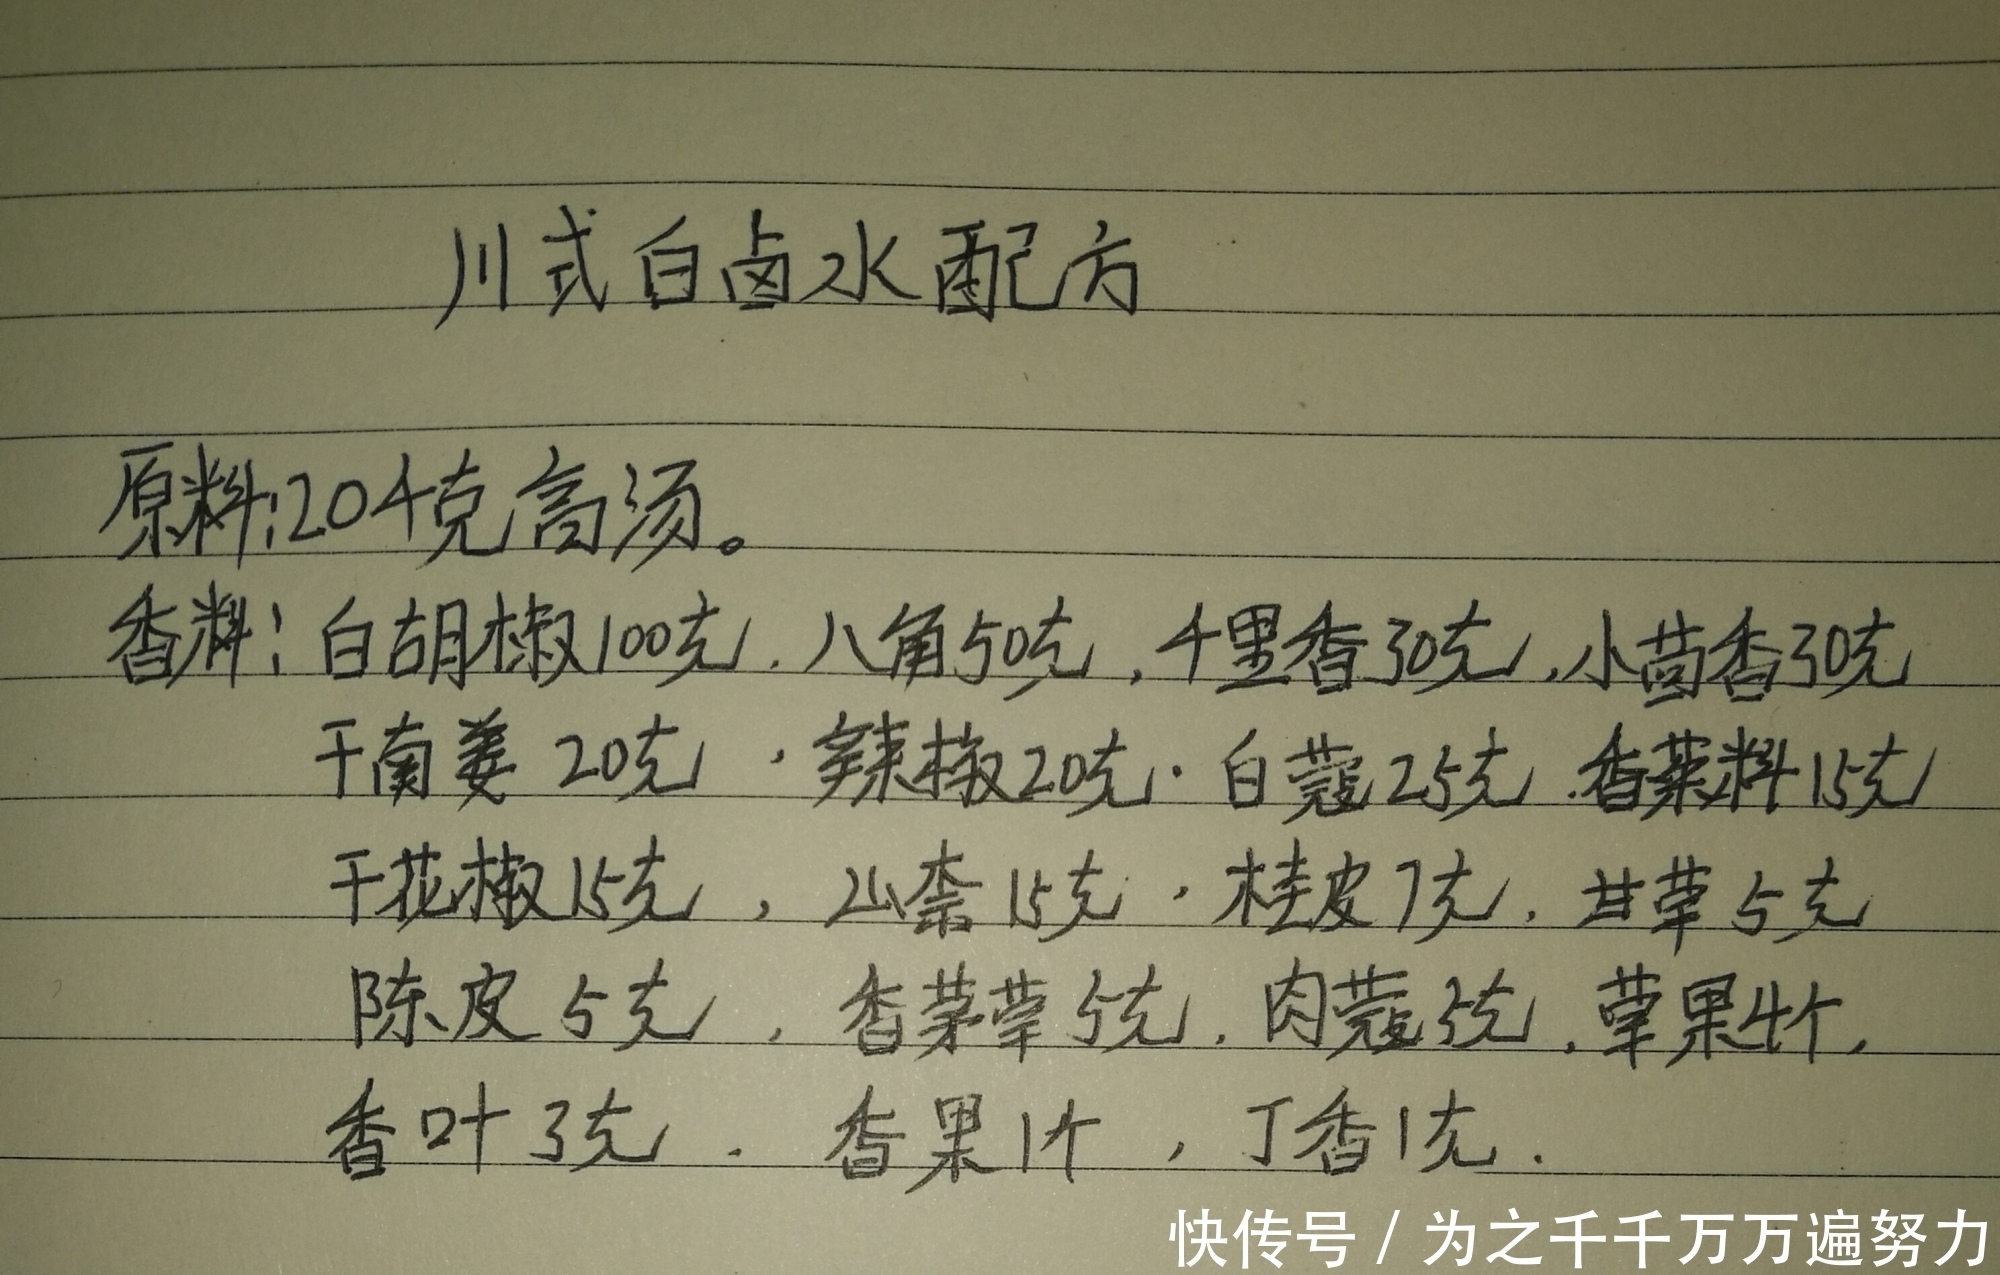 川式白卤水配方
原料:20千克高汤。
香料:白胡椒100克.八角50克,千里香30克,小茴香30克
干南姜20克,辣椒20克.白蔻25克.香菜料15克
干花椒15克,山柰15克,桂皮7克,甘草5克
陈皮5克,香茅草5克,肉蔻3克,草果4个,
香叶3克.香果1个,丁香1克.
快传号/为之千千万万遍努力